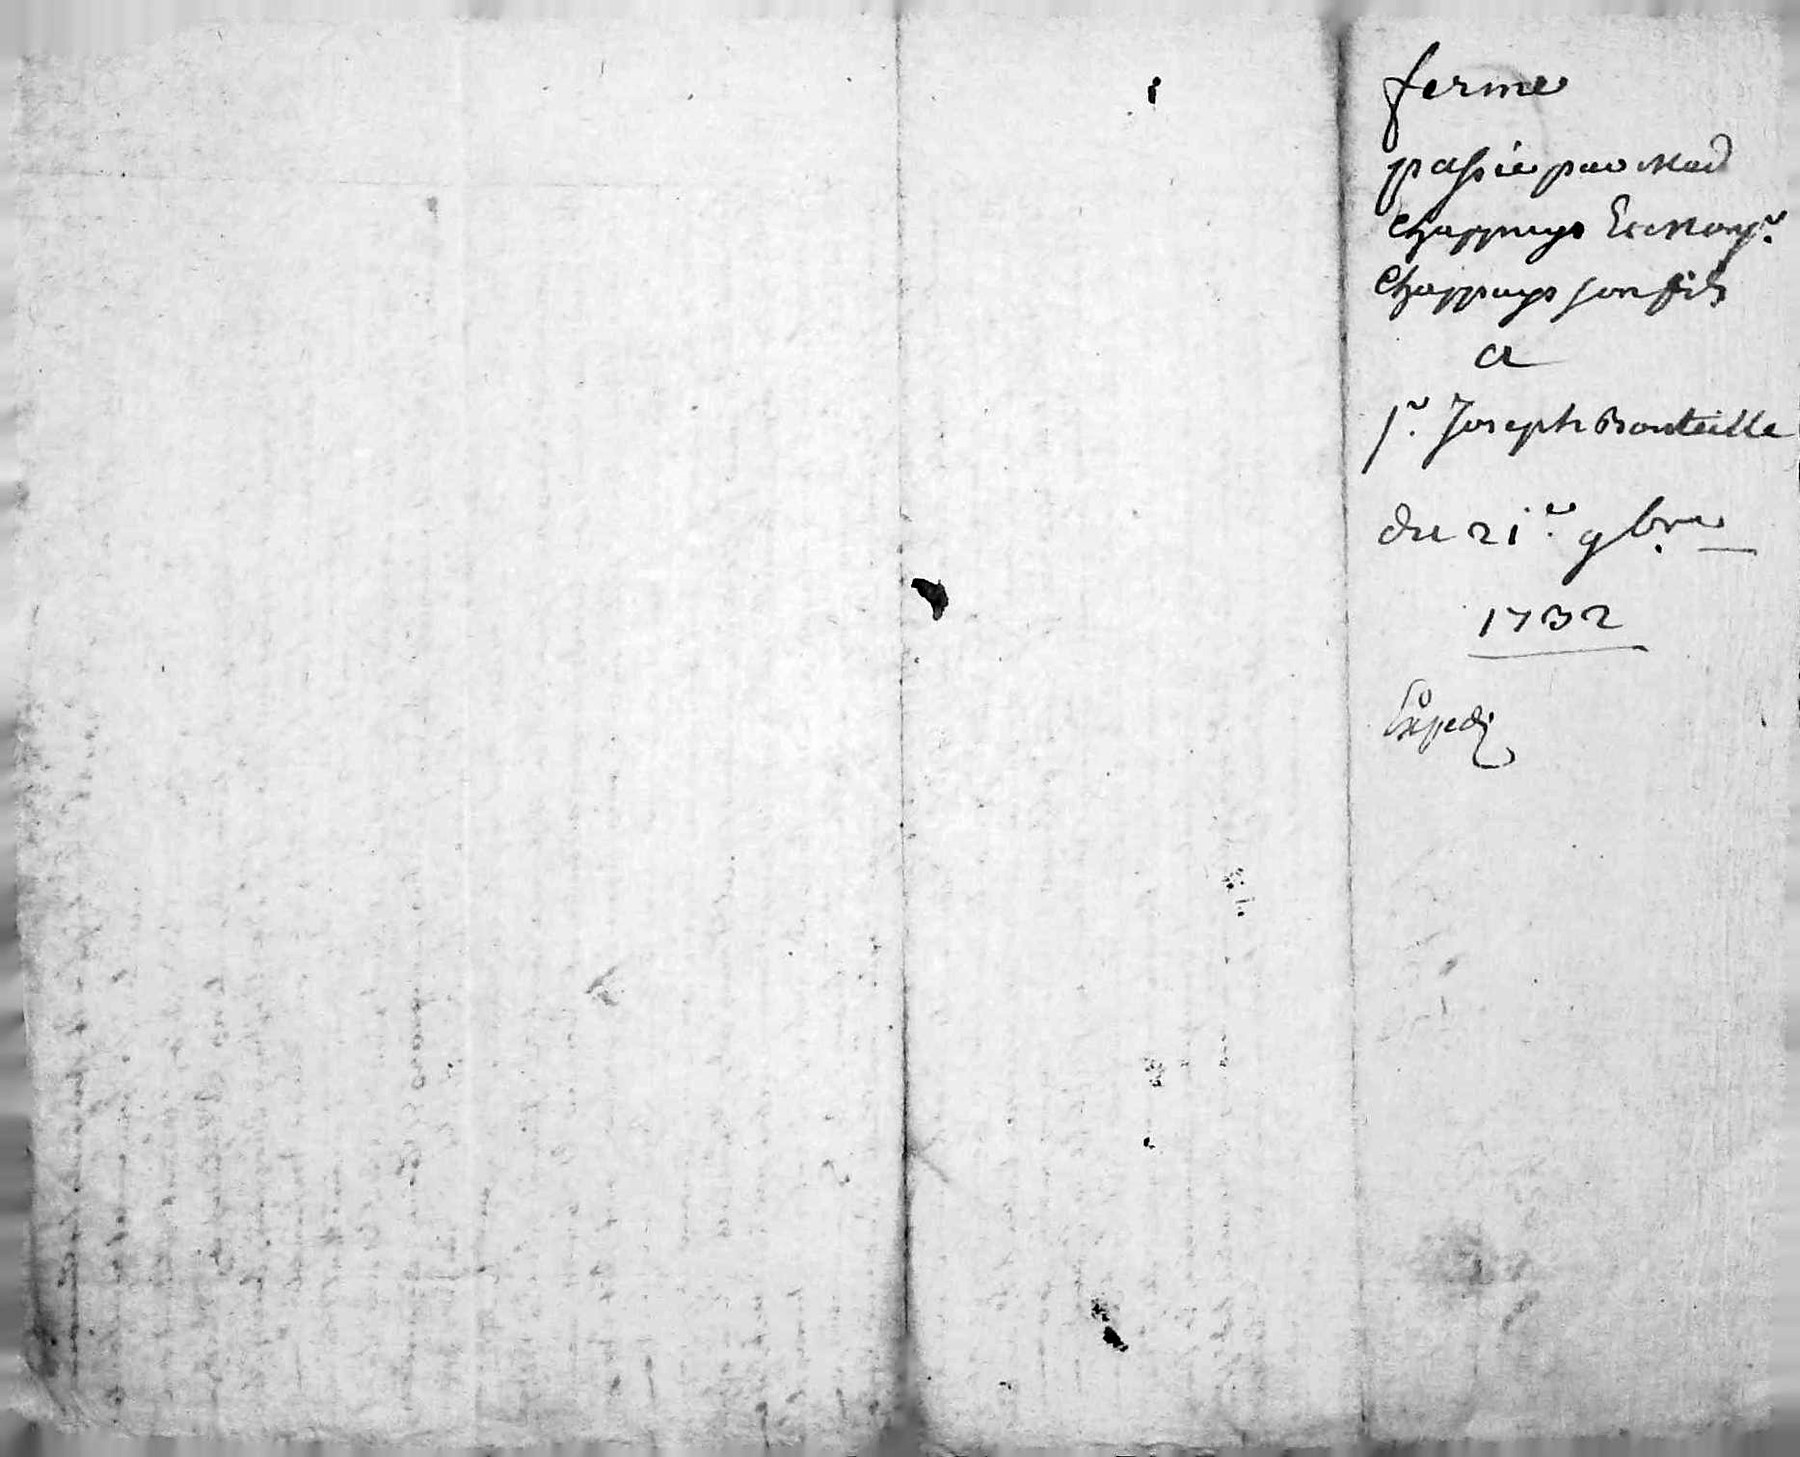 ferme
passée par Mad
Chappuys Et Monsr.
Chappuys son fils
a
sr. Joseph Bouteille
du 21e. 9bre
1732
Expedi